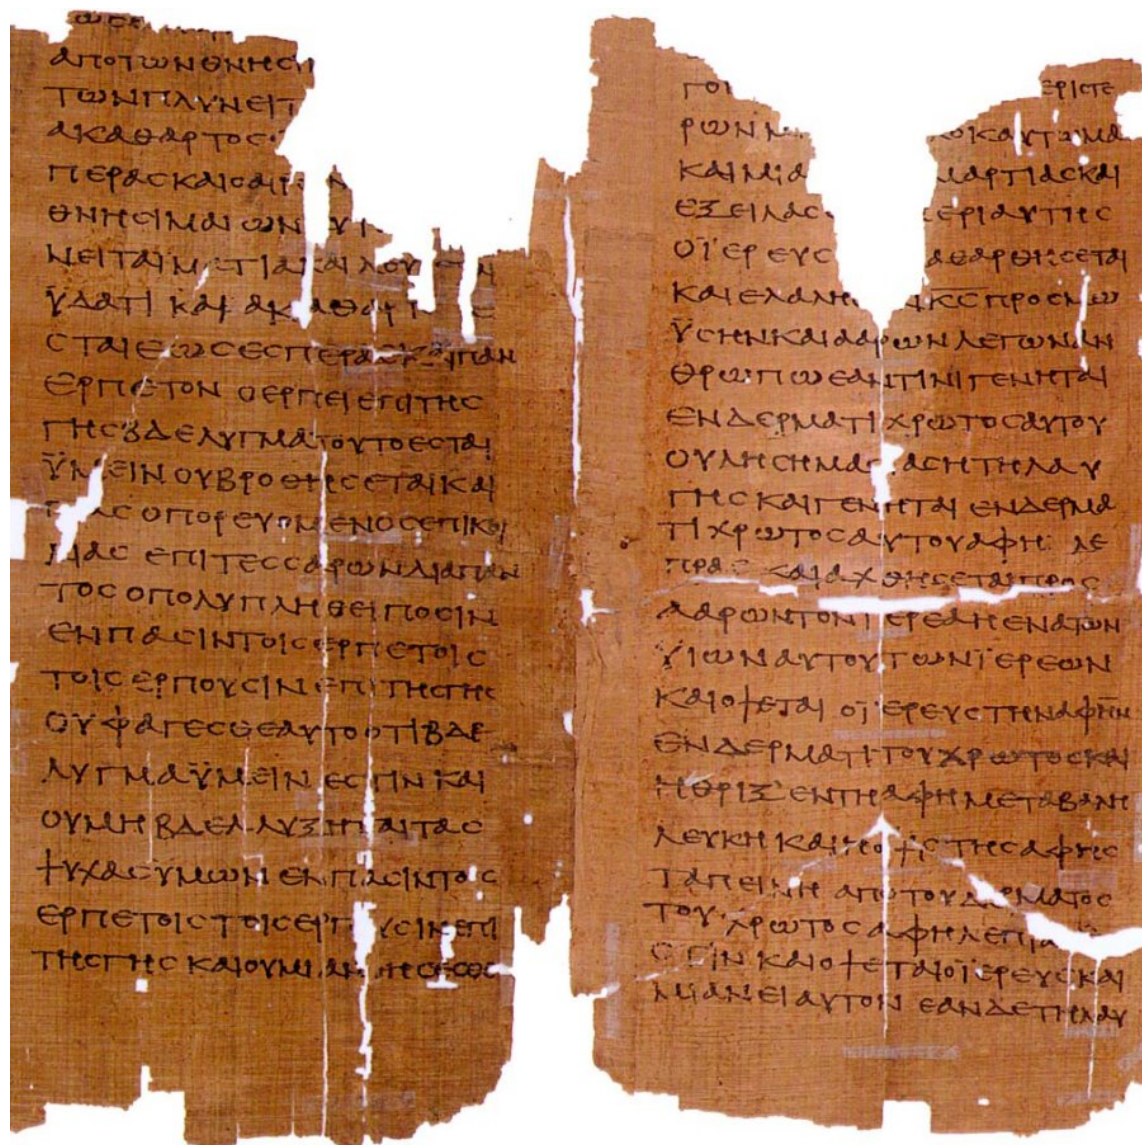 ΑΠΟΤΩΝΘΝΗϹΙ
ΤΩΝΠΛΥΝΕΙΤ
ΑΚΑΘΑΡΤΟϹ
ΠΕΡΑϹΚΑΙΟΑΙΡ
ΘΝΗϹΙΜΑΙΩΝ
ΝΕΙΤΑΙΜΑΤΙΑΚΑΙΛΟΥ
ΫΔΑΤΙ ΚΑΙ ΑΚΑΘΑΡΤΟϹΕ
ϹΤΑΙΕΩϹΕϹΠΕΡΑϹΚΑΙΠΑΝ
ΕΡΠΕΤΟΝ ΟΕΡΠΕΙΕΠΙΤΗϹ
ΓΗϹΒΔΕΛΥΓΜΑΤΟΥΤΟΕϹΤΑΙ
ΫΜΕΙΝ ΟΥΒΡΟΘΗϹΕΤΑΙΚΑΙ
ΠΑϹ ΟΠΟΡΕΥΟΜΕΝΟϹΕΠΙΚΟΙ
ΛΙΑϹ ΕΠΙΤΕϹϹΑΡΩΝΔΙΑΠΑΝ
ΤΟϹ ΟΠΟΛΥΠΛΗΘΕΙΠΟϹΙΝ
ΕΝΠΑϹΙΝΤΟΙϹΕΡΠΕΤΟΙϹ
ΤΟΙϹΕΡΠΟΥϹΙΝΕΠΙΤΗϹΓΗϹ
ΟΥΦΑΓΕϹΘΕΑΥΤΟΟΤΙΒΔΕ
ΛΥΓΜΑΫΜΕΙΝ ΕϹΤΙΝ ΚΑΙ
ΟΥΜΗ ΒΔΕΛΛΥΞΗΤΑΙΤΑϹ
ΨΥΧΑϹΥΜΩΝ ΕΝΠΑϹΙΝΤΟΙϹ
ΕΡΠΕΤΟΙϹ ΤΟΙϹΕΡΠΟΥϹΙΝΕΠΙ
ΤΗϹΓΗϹ ΚΑΙΟΥΜΙΑΝΘΗϹΕϹΘΕ
ΓΟΙ ΕΡΙϹΤΕ
ΡΩΝ ΚΑΥΤΩΜΑ
ΚΑΙΜΙΑ ΜΑΡΤΙΑϹΚΑΙ
ΕΞΕΙΛΑϹ ΠΕΡΙΑΥΤΗϹ
ΟΪΕΡΕΥϹ ΑΘΑΡΘΗϹΕΤΑΙ
ΚΑΙΕΛΑΛΗϹ Κ̅Ϲ̅ΠΡΟϹΜΩ
ΫϹΗΝΚΑΙΑΑΡΩΝΛΕΓΩΝΑΝ
ΘΡΩΠΩΕΑΝΤΙΝΙΓΕΝΗΤΑΙ
ΕΝΔΕΡΜΑΤΙΧΡΩΤΟϹΑΥΤΟΥ
ΟΥΛΗϹΗΜΑϹΙΑϹΗΤΗΛΑΥ
ΓΗϹ ΚΑΙΓΕΝΗΤΑΙ ΕΝΔΕΡΜΑ
ΤΙΧΡΩΤΟϹΑΥΤΟΥΑΦΗ ΛΕ
ΠΡΑϹ ΚΑΙΑΧΘΗϹΕΤΑΙΠΡΟϹ
ΑΑΡΩΝΤΟΝΪΕΡΕΑΗΕΝΑΤΩΝ
ΫΙΩΝΑΥΤΟΥΤΩΝΪΕΡΕΩΝ
ΚΑΙΟΨΕΤΑΙ ΟΪΕΡΕΥϹΤΗΝΑΦΗΝ
ΕΝΔΕΡΜΑΤΙΤΟΥΧΡΩΤΟϹΚΑΙ
ΗΘΡΙΞ ΕΝΤΗΑΦΗΜΕΤΑΒΑΛΗ
ΛΕΥΚΗ ΚΑΙΗΟΨΙϹΤΗϹΑΦΗϹ
ΤΑΠΕΙΝΗ ΑΠΟΤΟΥΔΕΡΜΑΤΟϹ
ΤΟΥ ΧΡΩΤΟϹΑΦΗΛΕΠΡΑ
ΕϹΤΙΝ ΚΑΙΟΨΕΤΑΙΟΪΕΡΕΥϹΚΑΙ
ΜΙΑΝΕΙΑΥΤΟΝ ΕΑΝΔΕΤΗΛΑΥ